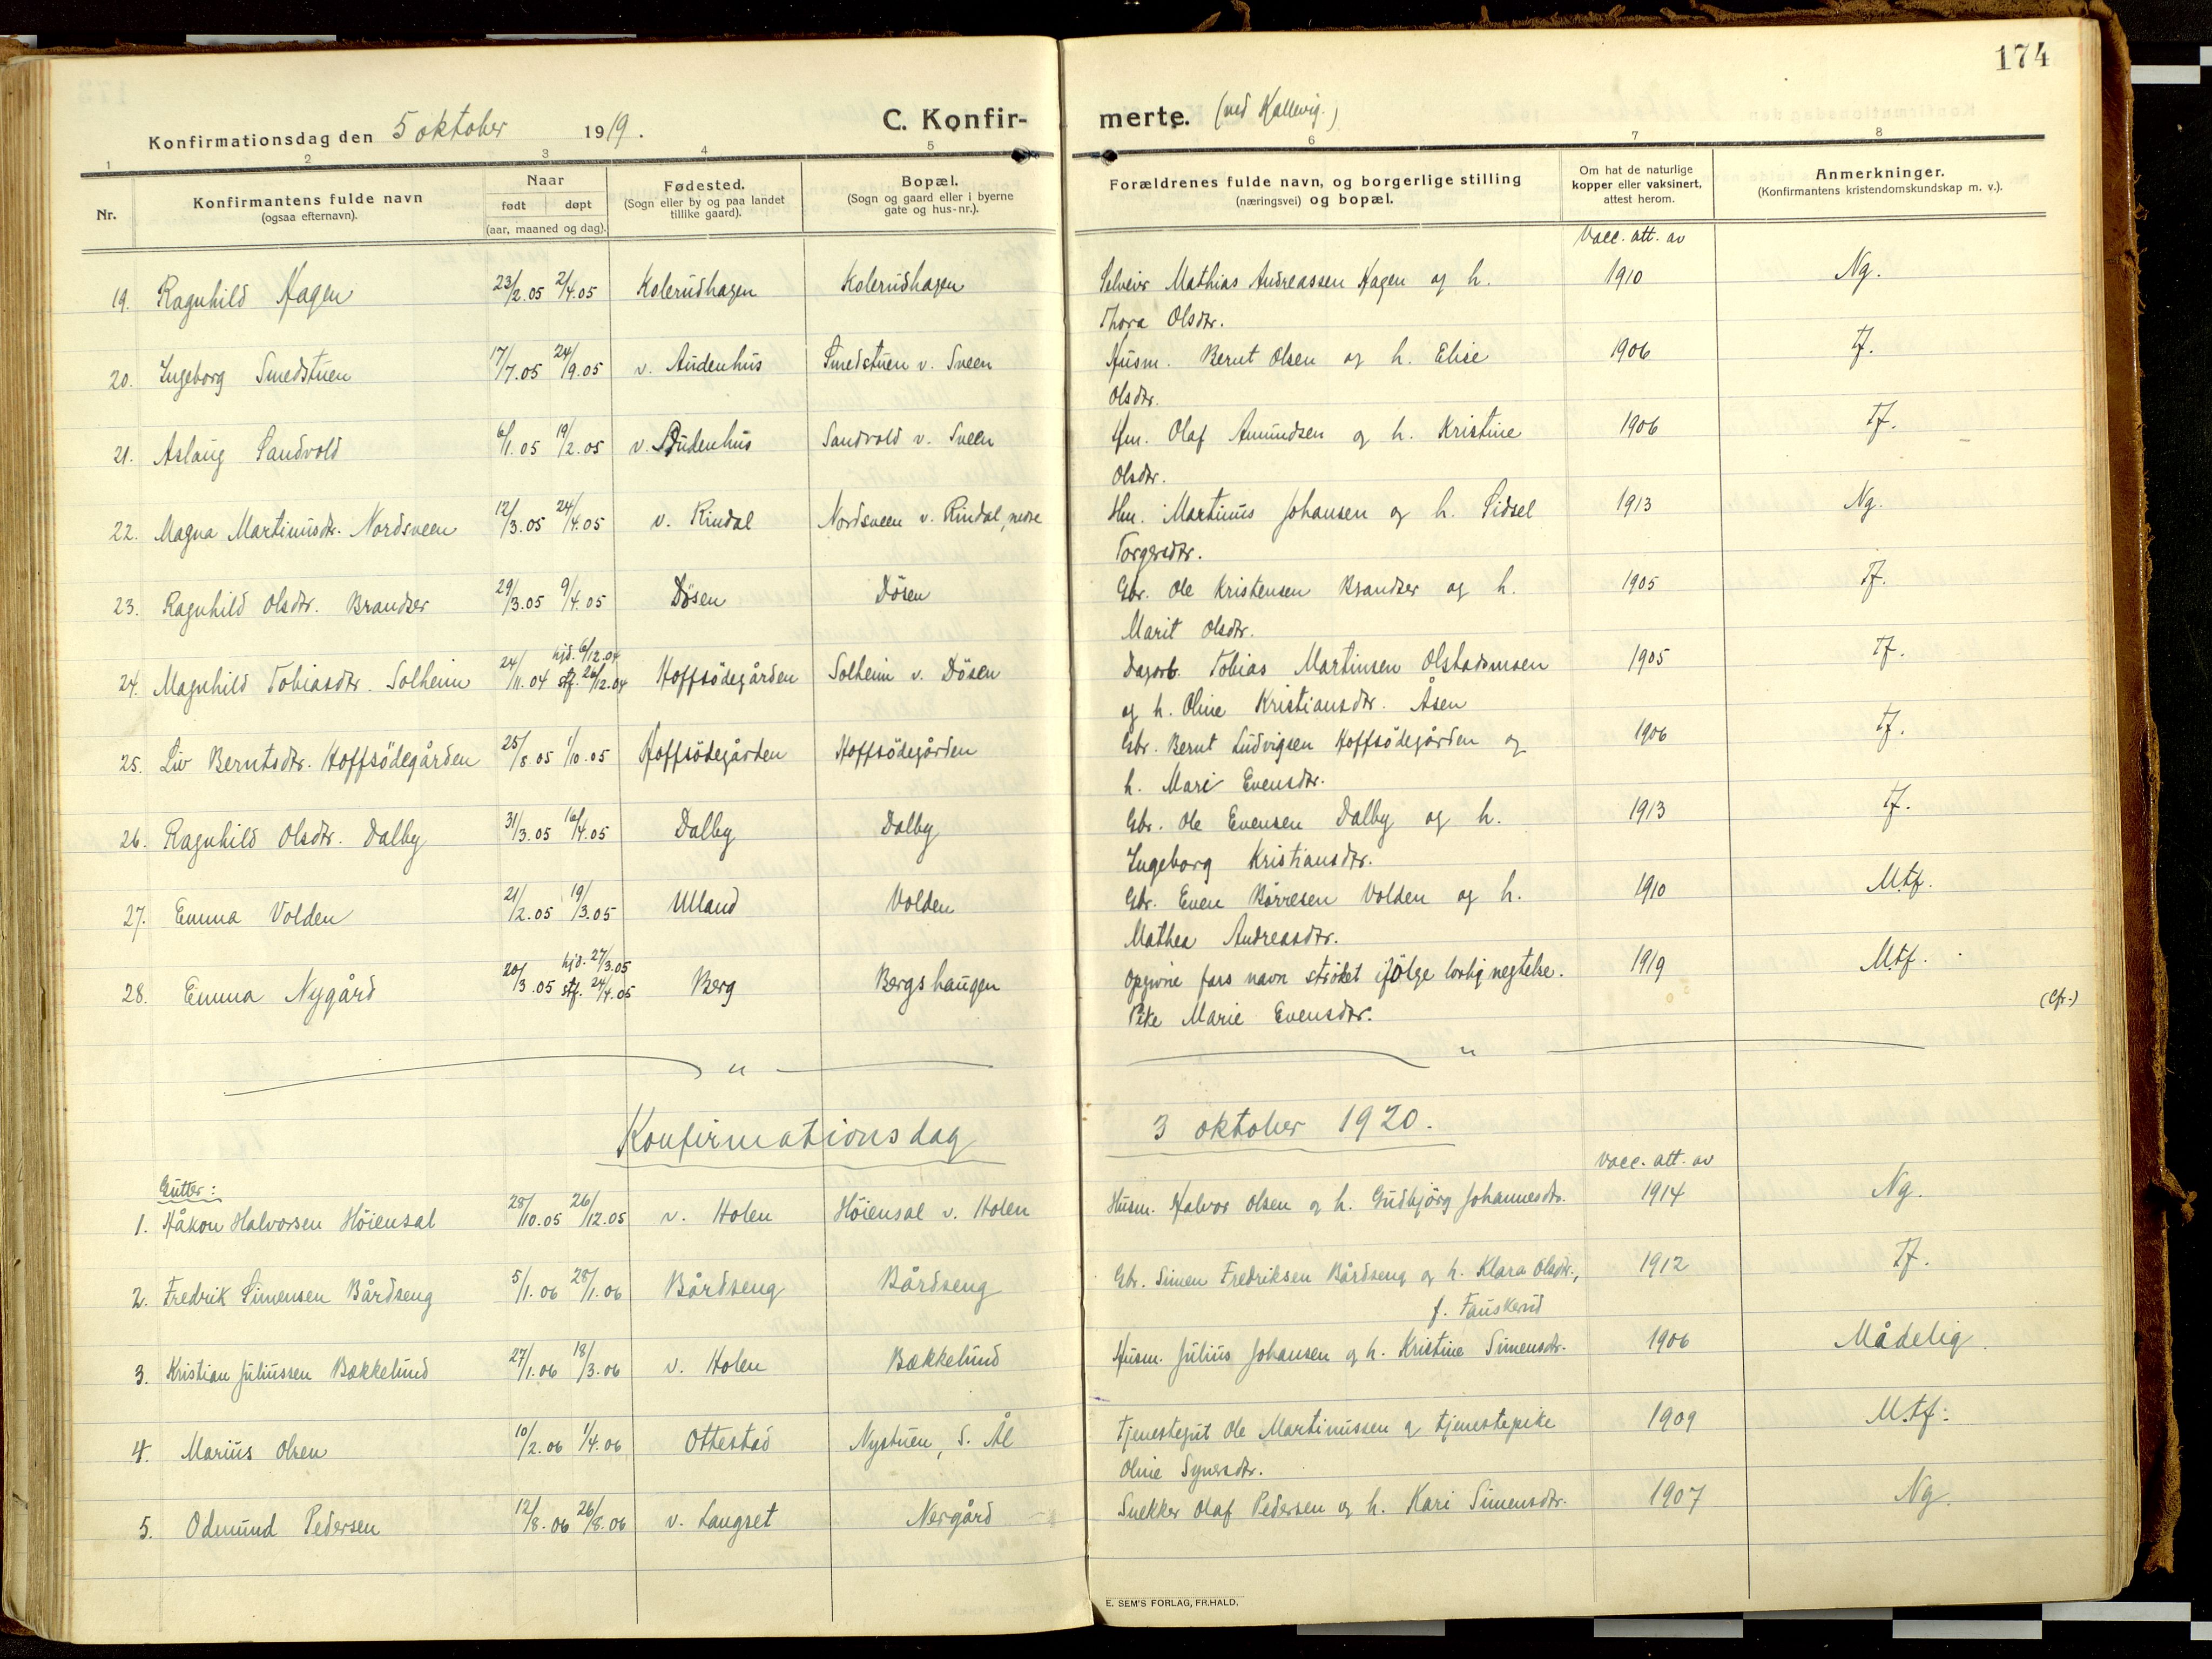 174
Konfirmationsdag den 5 oktober 1919.
C. Konfirmerte. (ved Kallevig.)
1 2 3 4 5 6 7 8
Nr.
Konfirmantens fulde navn
(ogsaa efternavn).
Naar
født døpt
(aar, maaned og dag).
Fødested.
(Sogn eller by og paa landet
tillike gaard).
Bopæl.
(Sogn og gaard eller i byerne
gate og hus-nr.).
Forældrenes fulde navn, og borgerlige stilling
(næringsvei) og bopæl.
Om hat de naturlige
kopper eller vaksinert,
attest herom.
Anmerkninger.
(Konfirmantens kristendomskundskap m. v.).
Vacc. att. av
19. Ragnhild Hagen 23/2.05 2/4.05 Kolerudhagen Kolerudhagen Selveier Mathias Andreassen Hagen og h. 1910 Ng.
Thora Olsdtr.
20. Ingeborg Smedstuen 17/7.05 24/9.05 v. Audenhus Smedstuen v. Sveen Husm. Bernt Olsen og h. Elise 1906 Tf.
Olsdtr.
21. Aslaug Sandvold 6/1.05 19/2.05 v. Audenhus Sandvold v. Sveen Hm. Olaf Amundsen og h. Kristine 1906 Tf.
Olsdtr.
22. Magna Martinusdtr. Nordsveen 12/3.05 24/4.05 v. Rindal Nordsveen v. Rindal, nedre Hm. Martinus Johansen og h. Sidsel 1913 Ng.
Torgersdtr.
23. Ragnhild Olsdtr. Brandser 29/3.05 9/4.05 Døsen Døsen Gbr. Ole Kristensen Brandser og h. 1905 Tf.
Marit Olsdtr.
hjd. 6/12.04
24. Magnhild Tobiasdtr. Solheim 24/11.04 stf. 26/12.04 Hoffsødegården Solheim v. Døsen Dagarb. Tobias Martinsen Olstadmoen 1905 Tf.
og h. Oline Kristiansdtr. Åsen
25. Liv Berntsdtr. Hoffsødegården 25/8.05 1/10.05 Hoffsødegården Hoffsødegården Gbr. Bernt Ludvigsen Hoffsødegården og 1906 Tf.
h. Mari Evensdtr.
26. Ragnhild Olsdtr. Dalby 31/3.05 16/4.05 Dalby Dalby Gbr. Ole Evensen Dalby og h. 1913 Tf.
Ingeborg Kristiansdtr.
27. Emma Volden 21/2.05 19/3.05 Ulland Volden Gbr. Even Børresen Volden og h. 1910 Mtf.
Mathea Andreasdtr.
hjd. 27/3.05
28. Emma Nygård 20/3.05 stf. 24/4.05 Berg Bergshaugen Opgivne fars navn strøket ifølge lovlig negtelse. 1919 Mtf.
Pike Marie Evensdtr. (Cfr.)
"
"
Konfirmationsdag 3 oktober 1920.
Vacc. att. av
Gutter:
1. Håkon Halvorsen Høiensal 28/10.05 26/12.05 v. Holen Høiensal v. Holen Husm. Halvor Olsen og h. Gudbjørg Johannesdtr. 1914 Ng.
2. Fredrik Simensen Bårdseng 5/1.06 28/1.06 Bårdseng Bårdseng Gbr. Simen Fredriksen Bårdseng og h. Klara Olsdtr., 1912 Tf.
f. Fauskerud
3. Kristian Juliussen Bækkelund 27/1.06 18/3.06 v. Holen Bækkelund Husm. Julius Johansen og h. Kristine Simensdtr. 1906 Mådelig.
4. Marius Olsen 10/2.06 1/4.06 Ottestad Nystuen, S. Ål Tjenestegut Ole Martinussen og tjenestepike 1909 Mtf.
Oline Syversdtr.
5. Odmund Pedersen 12/8.06 26/8.06 v. Langset Nergård Snekker Olaf Pedersen og h. Kari Simensdtr. 1907 Ng.
E. SEM'S FORLAG, FR.HALD.